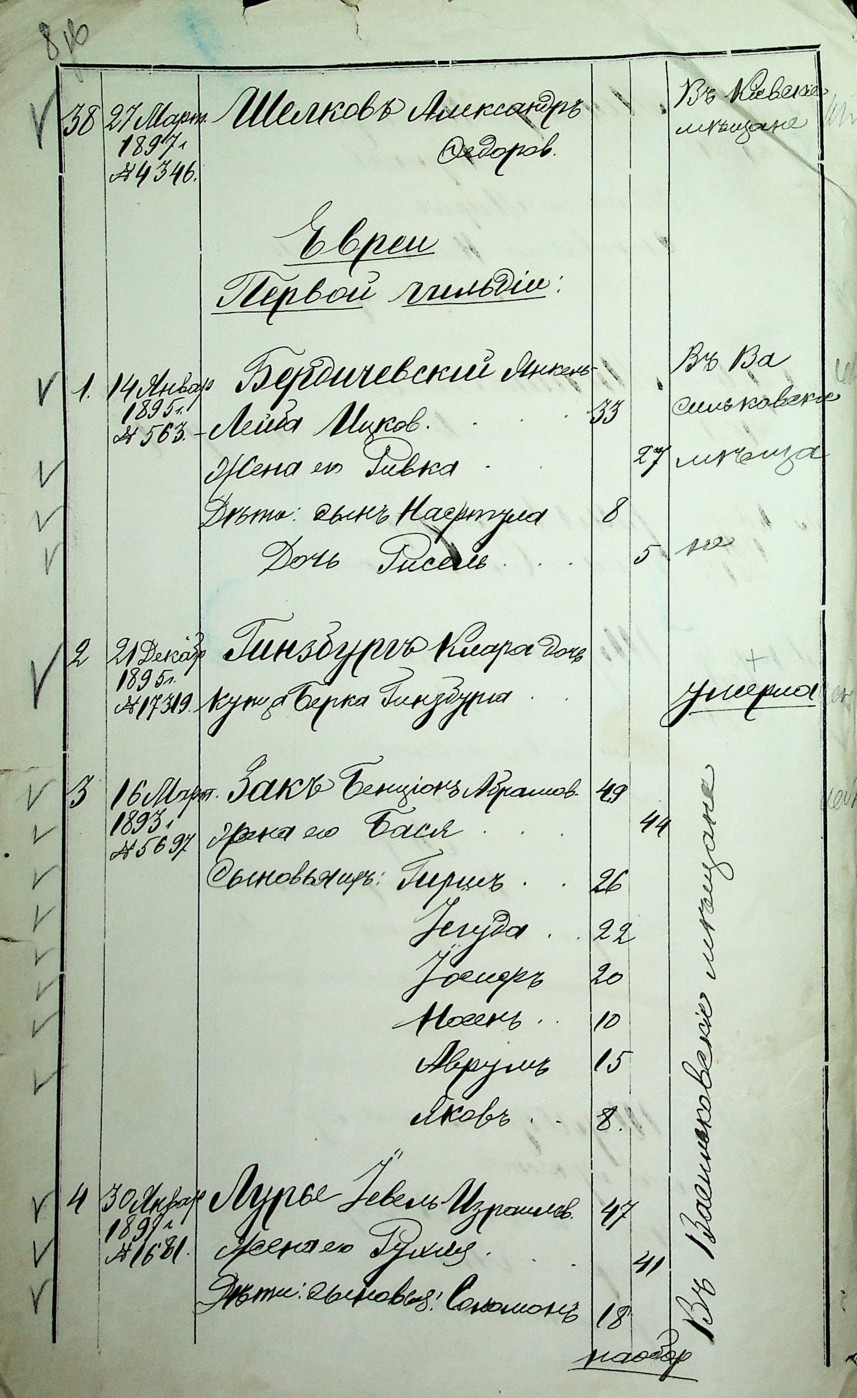 38 27 Март. Шелковъ Александръ Въ Кіевскіе
1897 г. Федоров. мѣщане
№ 4346.
Евреи
Первой гильдіи:
1. 14 Январ Бердичевскій Янкель- Въ Ва
1895 г. Лейба Ицков. 33 сильковскіе
№ 563.
Жена его Ривка 27 мѣща
Дѣти: сынъ Насртула 8
Дочь Рисель 5 не
2 21 Декабр Гинзбургъ Клара дочь
1895 г.
№ 17319. купца Берка Гинзбурга умерла
3 16 Март. Закъ Бенціонъ Абрамов. 49
1893 г. Жена его Бася 44
№ 5697
Сыновья ихъ: Гиршъ 26
Іегуда 22
Іосифъ 20
Носень 10
Аврумъ 15
Яковъ 8.
Въ Васильковскіе мѣщане
4 30 Январ Лурье Іевель Израилев. 47
1897 г. Жена его Рухля 41
№ 1681.
Дѣти: сыновья: Соломонъ 18
наобор